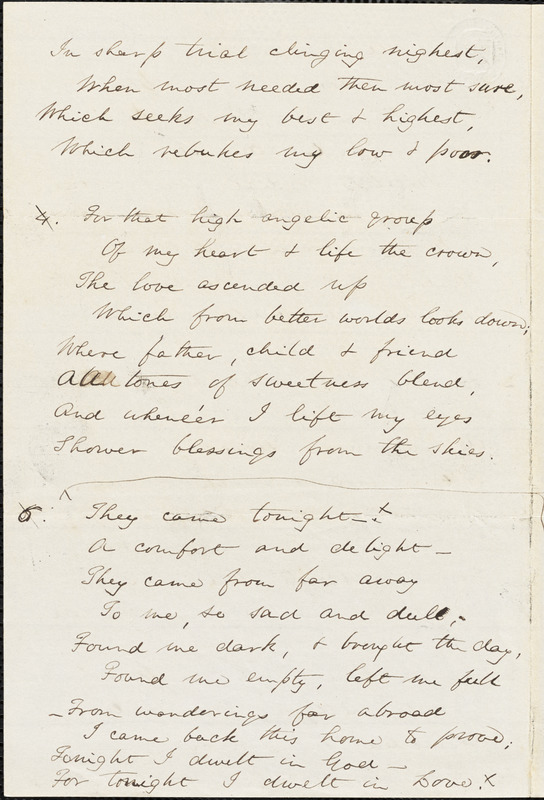 In sharp trial clinging nighest,
When most needed then most sure,
Which seeks my best & highest,
Which rebukes my low & poor.
4. For that high angelic group
Of my heart & life the crown,
The love ascended up
Which from better worlds looks down;
Where father, child & friend
All tones of sweetness blend,
And whene'er I lift my eyes
Shower blessings from the skies.
They came tonight—x
A comfort and delight—
They came from far away
To me, so sad and dull,—
Found me dark, & brought the day,
Found me empty, left me full
—From wanderings far abroad
I came back this home to prove;
Tonight I dwelt in God—
For tonight I dwelt in Love.x